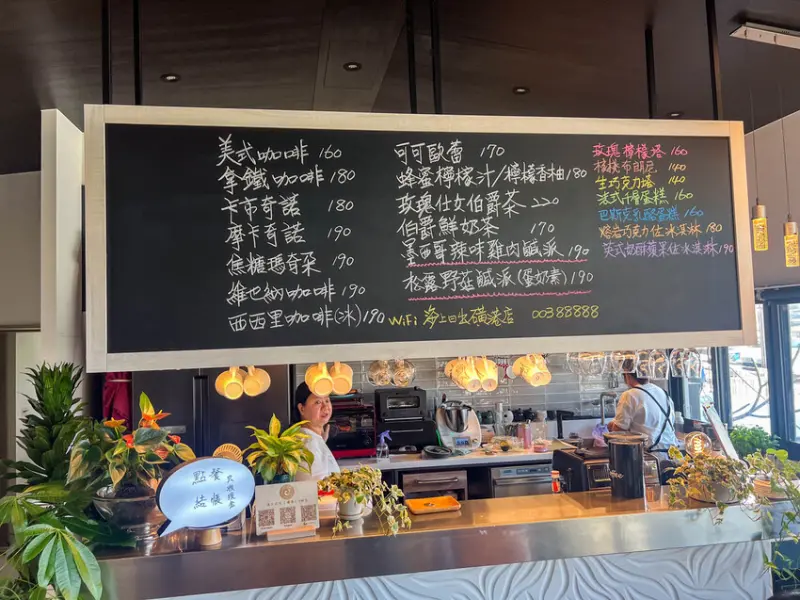 美式咖啡 160
拿鐵咖啡 180
卡布奇諾 180
摩卡奇諾 190
焦糖瑪奇朵 190
維也納咖啡 190
西西里咖啡(冰) 190
可可歐蕾 170
蜂蜜檸檬汁/檸檬香柚 180
玫瑰仕女伯爵茶 220
伯爵鮮奶茶 170
墨西哥辣味雞肉鹹派 190
松露野菇鹹派(蛋奶素) 190
WiFi 海上日出礦港店 00388888
玫瑰檸檬塔 160
核桃布朗尼 140
生巧克力塔 140
法式千層蛋糕 160
巴斯克乳酪蛋糕 160
熔岩巧克力佐冰淇淋 180
英式奶酥蘋果佐冰淇淋 190
點餐
結帳